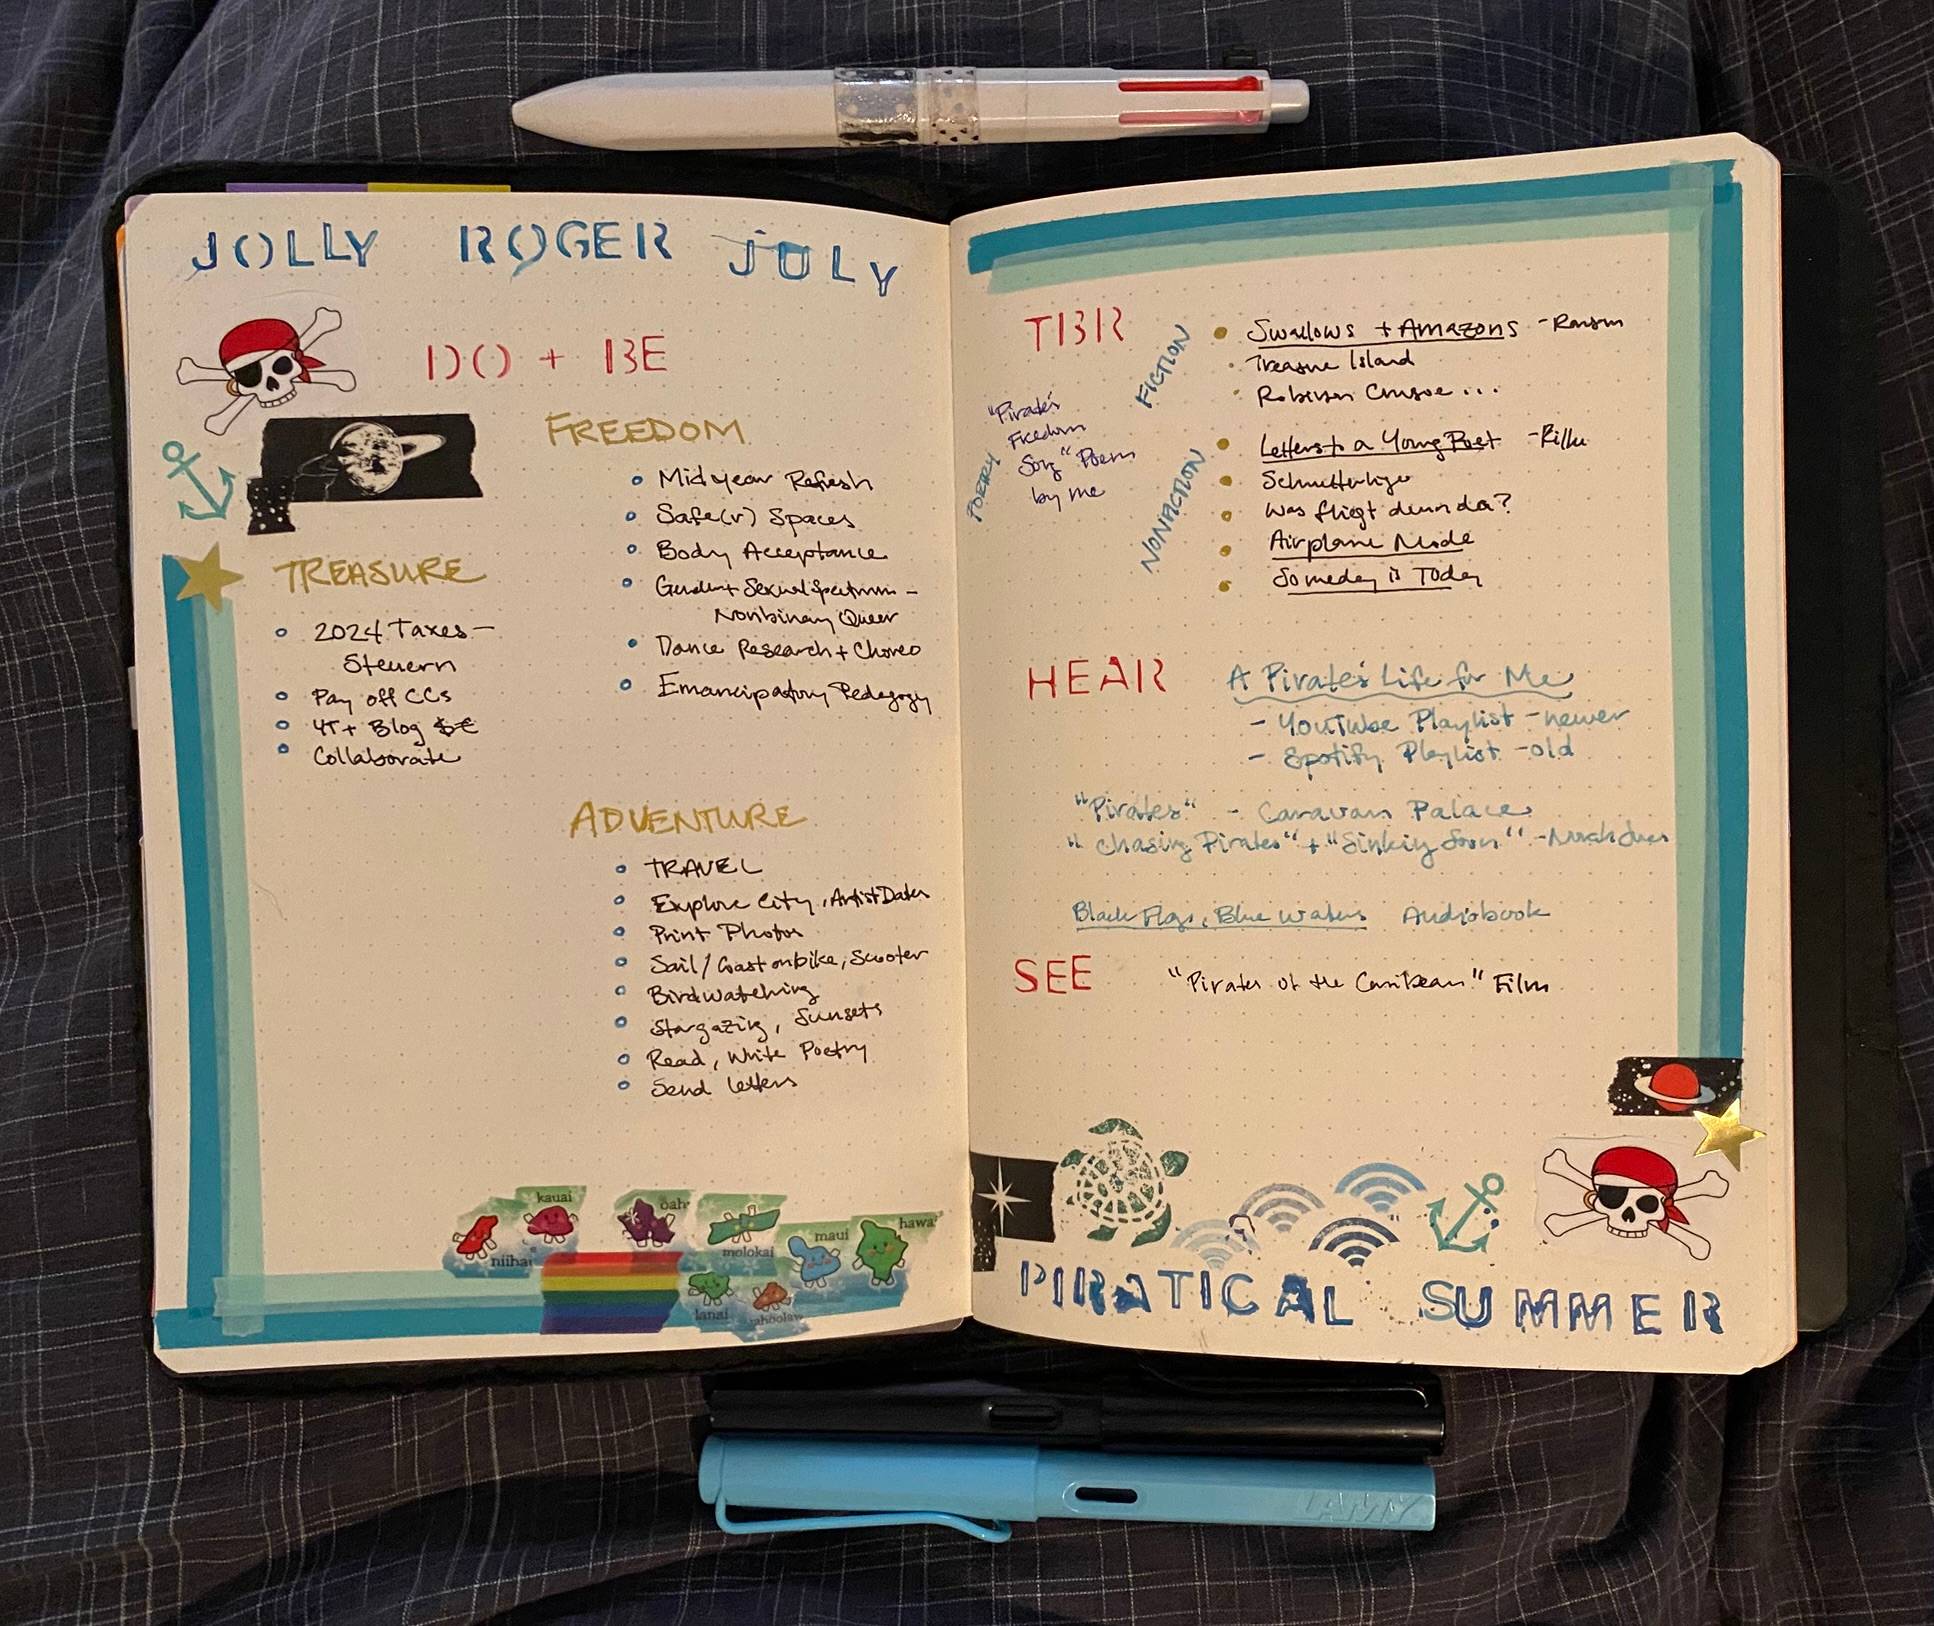 JOLLY ROGER JULY
DO + BE
FREEDOM
Midyear Refresh
Safe(r) Spaces
Body Acceptance
Gender + Sexual Spectrum -
Nonbinary Queer
Dance Research + Choreo
Emancipatory Pedagogy
TREASURE
2024 Taxes -
Steuern
Pay off CCs
YT + Blog $€
Collaborate
ADVENTURE
TRAVEL
Explore City, Artist Dates
Print Photos
Sail / Coast on bike, Scooter
Birdwatching
Stargazing, Sunsets
Read, Write Poetry
Send letters
kauai
niihau
oahu
molokai
lanai
maui
hawai
TBR
FICTION
Swallows + Amazons - Ransom
Treasure Island
Robinson Crusoe...
POETRY
"Pirate's
Freedom
Song" Poem
by me
NONFICTION
Letters to a Young Poet - Rilke
Schmetterlinge
Was fliegt denn da?
Airplane Mode
Someday is Today
HEAR
A Pirate's Life for Me
- YouTube Playlist - newer
- Spotify Playlist - old
"Pirates" - Caravan Palace
"Chasing Pirates" + "Sinking Soon" - Norah Jones
Black Flags, Blue Waters Audiobook
SEE
"Pirates of the Carribean" Film
PIRATICAL SUMMER
LAMY